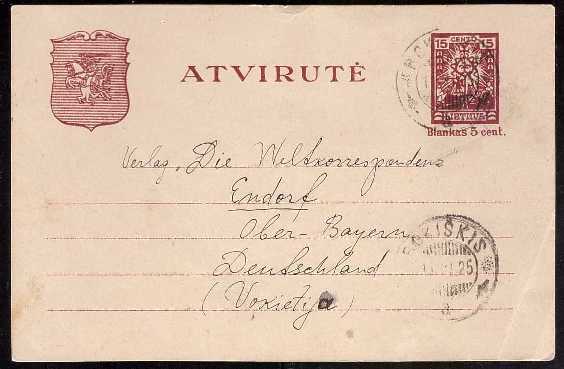 ATVIRUTĖ
15 CENTŲ 15
LIETUVA
Blankas 5 cent.
Verlag „Die Weltkorrespondenz
Endorf
Ober-Bayern
Deutschland
(Vokietija)
ROKIŠKIS
25